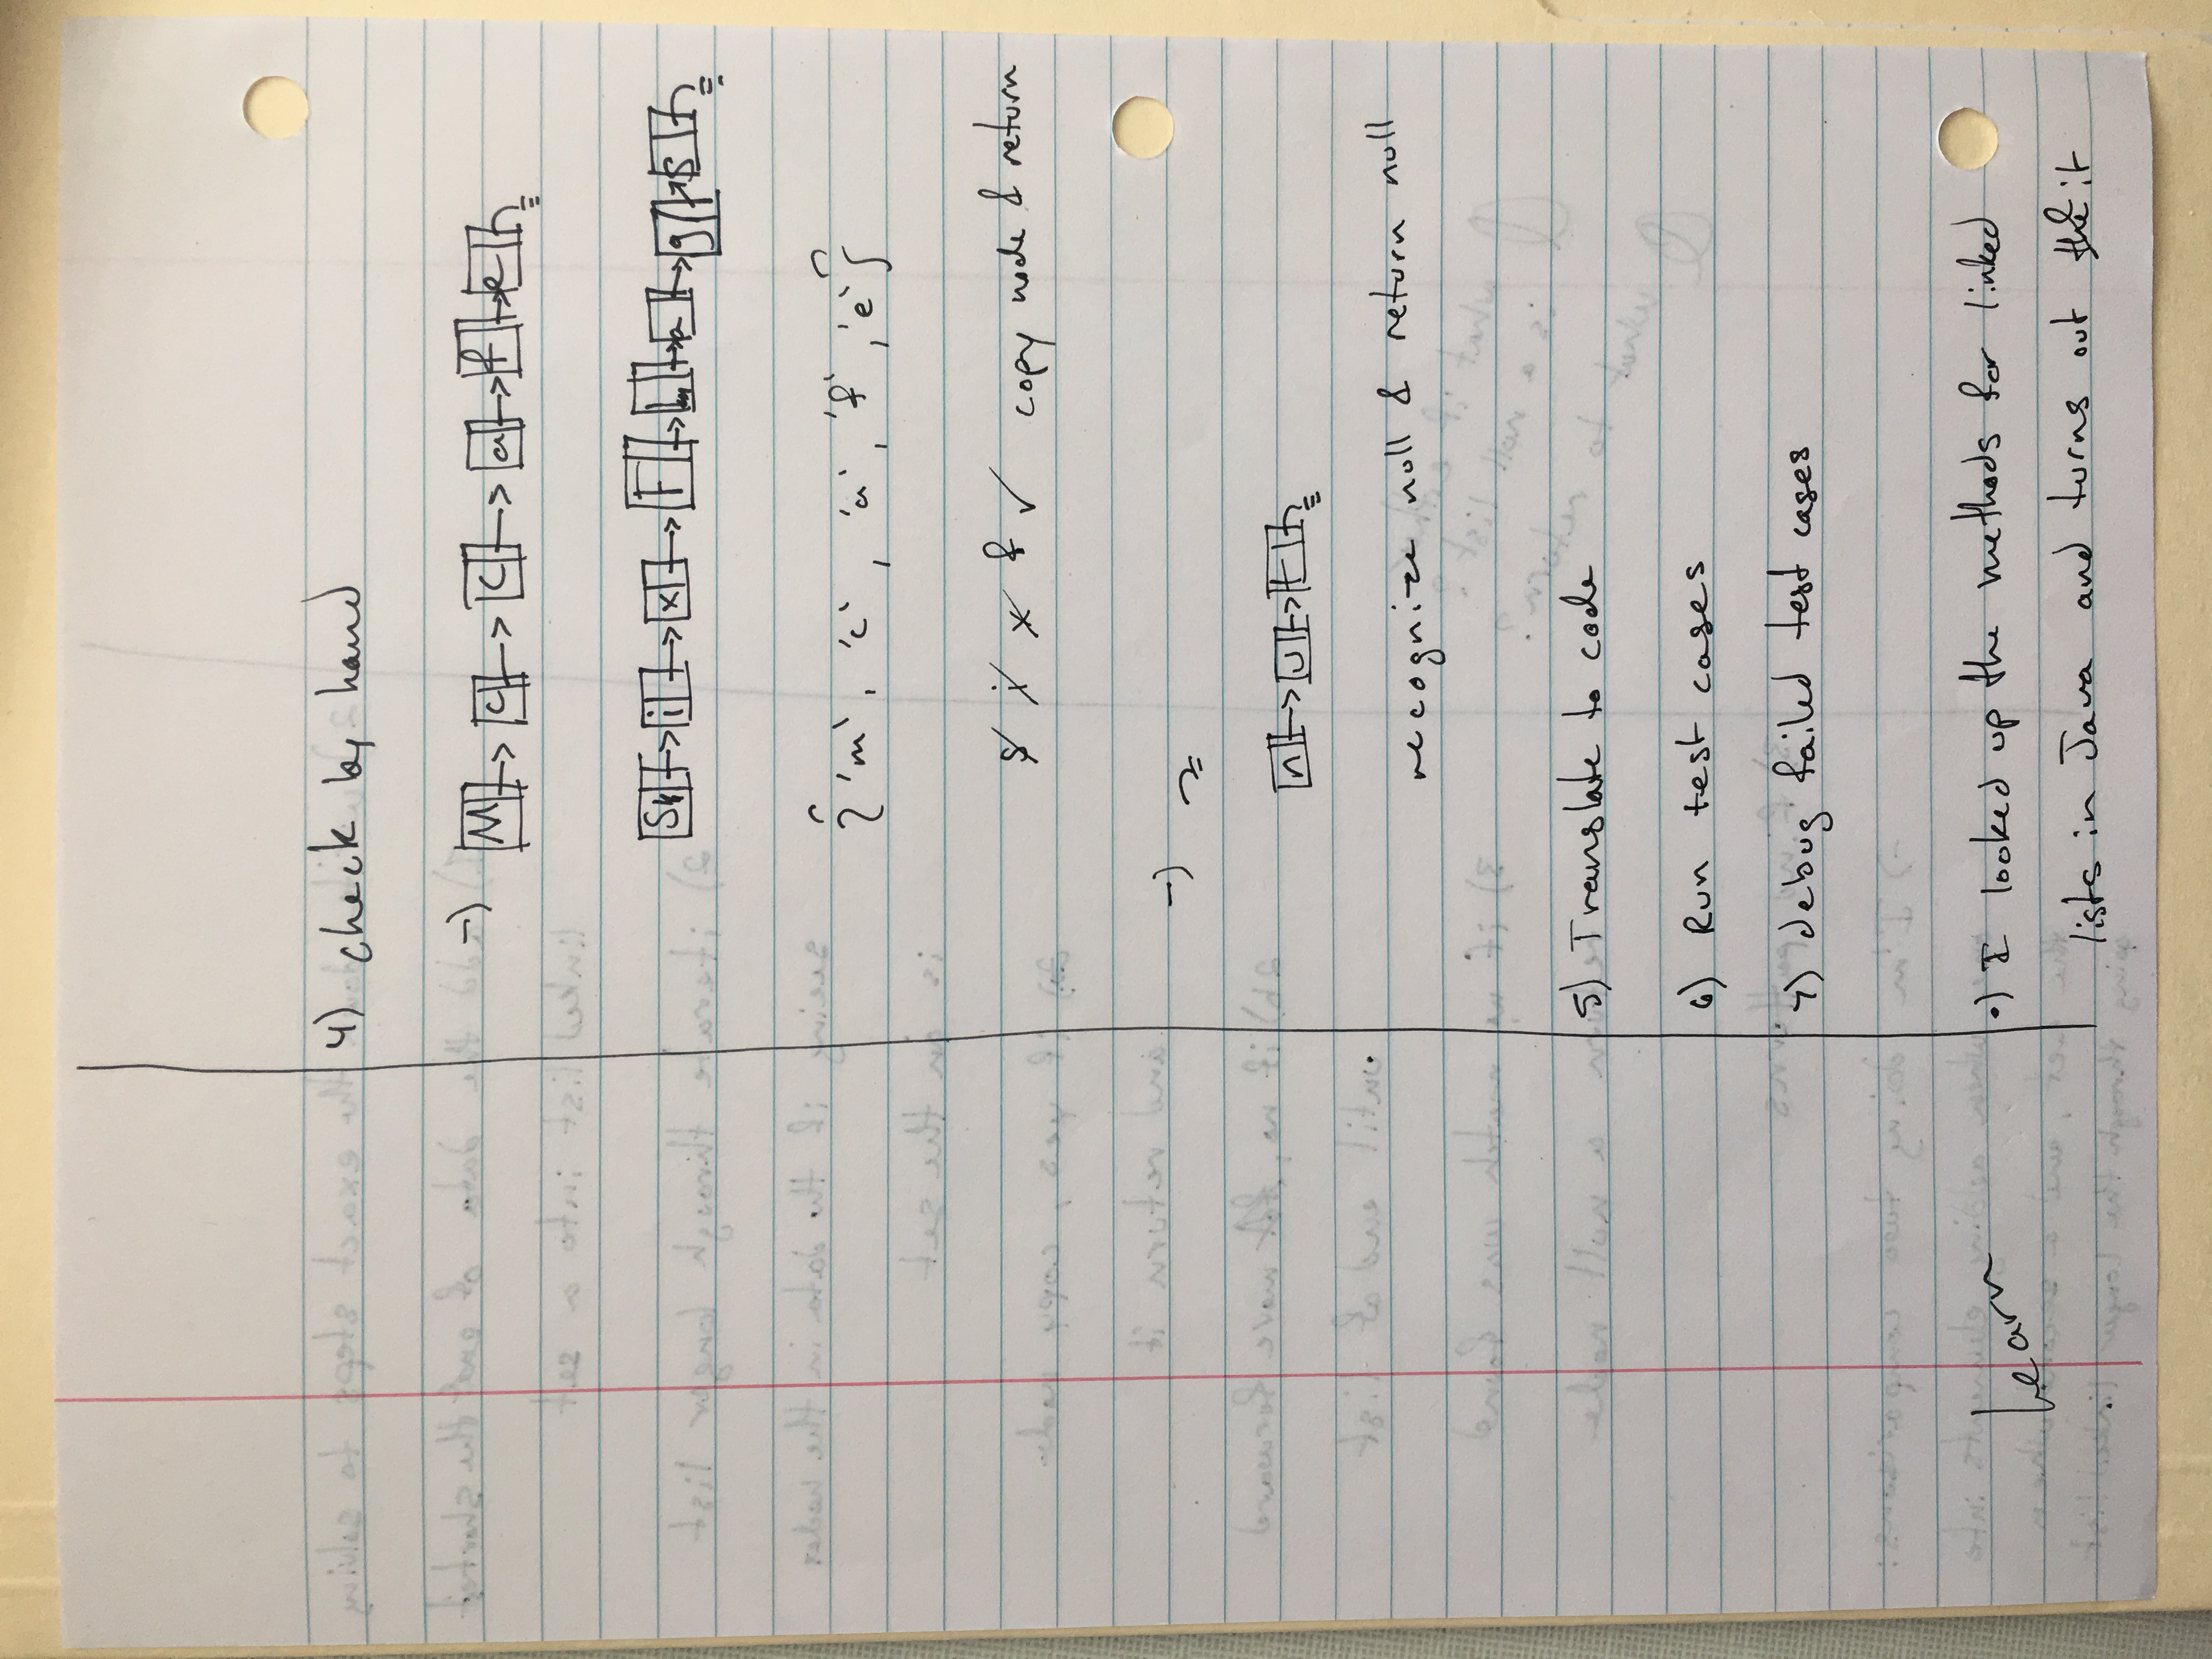 4) check by hand
-) M c C a f e
S i x F l a g s
{ 'm', 'c', 'a', 'f', 'e' }
s i x f ✓ copy node & return
-)
n u t
recognize null & return null
5) Translate to code
6) Run test cases
7) debug failed test cases
Learn
•) I looked up the methods for linked
lists in Java and turns out it